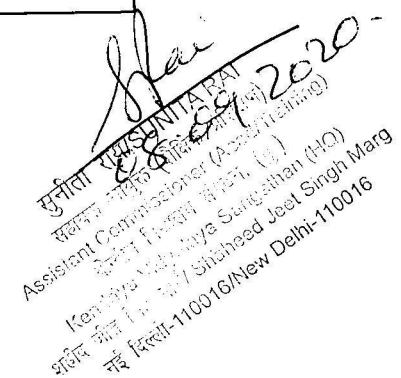 Srai
08/09/2020-
सुनीता राय/SUNITA RAI
सहायक आयुक्त
Assistant Commissioner (Acad/Training)
केन्द्रीय विद्यालय संगठन, (मु.)
Kendriya Vidyalaya Sangathan (HQ)
शहीद जीत सिंह मार्ग/ Shaheed Jeet Singh Marg
नई दिल्ली-110016/New Delhi-110016